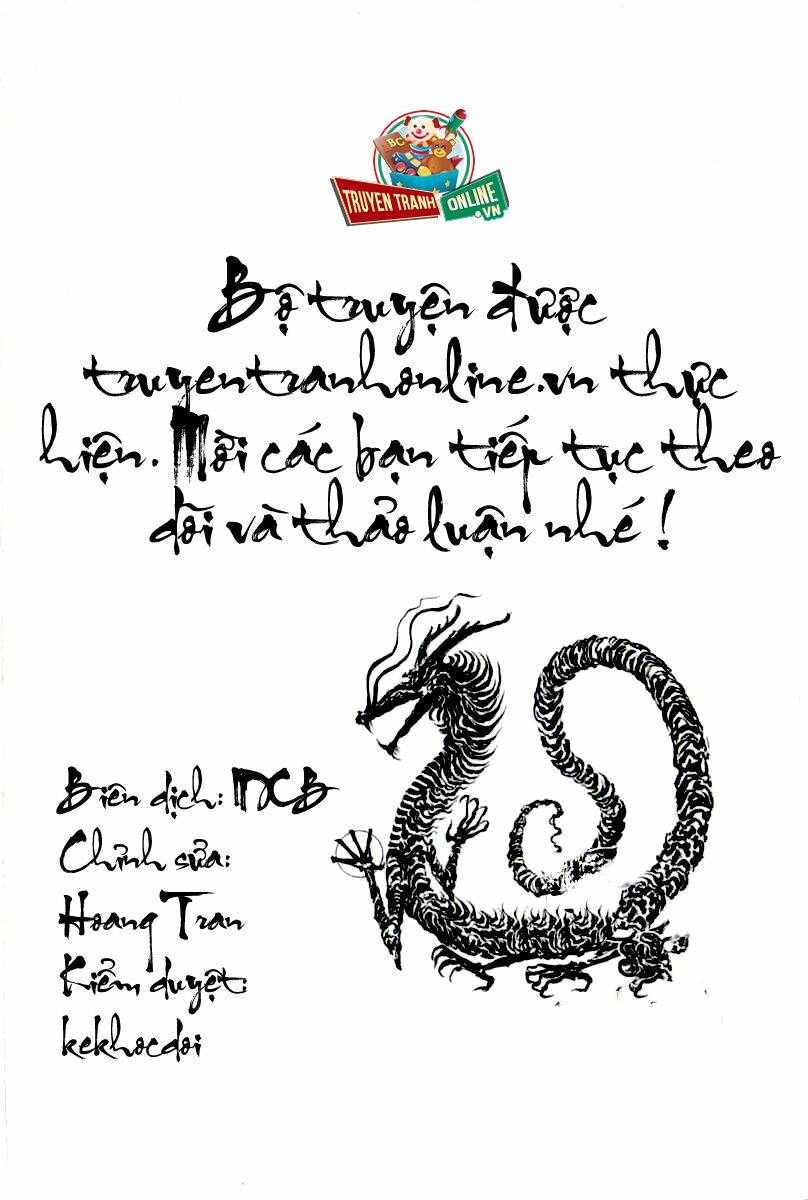 ABC
TRUYEN TRANH ONLINE
.VN
Bộ truyện được
truyentranhonline.vn thực
hiện. Mời các bạn tiếp tục theo
dõi và thảo luận nhé !
Biên dịch: NCB
Chỉnh sửa:
Hoang Tran
Kiểm duyệt:
kekhocdoi